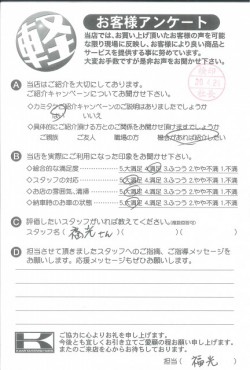 軽
お客様アンケート
当店では、お買い上げ頂いたお客様の声を可能
な限り現場に反映し、お客様により良い商品と
サービスを提供する事に努めています。
大変お手数ですが是非お声をお聞かせ下さい。
A 当店はご紹介を大切にしております。
ご紹介キャンペーンについてお聞かせ下さい。
◇カミタケご紹介キャンペーンのご説明はありましたでしょうか
はい いいえ
◇具体的にご紹介頂ける方との ご関係をお聞かせ頂けますでしょうか
ご親族 ご友人 職場の方 機会があれば紹介したい
B 当店を実際にご利用になった印象をお聞かせ下さい。
◇総合的な満足度 5.大満足 4.満足 3.ふつう 2.やや不満 1.不満
◇スタッフの対応 5.大満足 4.満足 3.ふつう 2.やや不満 1.不満
◇お店の雰囲気、清掃 5.大満足 4.満足 3.ふつう 2.やや不満 1.不満
◇納車時のお車の状態 5.大満足 4.満足 3.ふつう 2.やや不満 1.不満
C 評価したいスタッフがいれば教えてください。(複数回答可)
スタッフ名( 福光さん )( )
D 担当させて頂きましたスタッフへのご指摘、ご指導メッセージを
お願いします。応援メッセージもぜひお願いします。
K
ご協力に心よりお礼を申し上げます。
今後とも宜しくお引き立てご愛顧の程お願い申し上げます。
またのご来店を心からお待ちしております。
担当( 福光 )